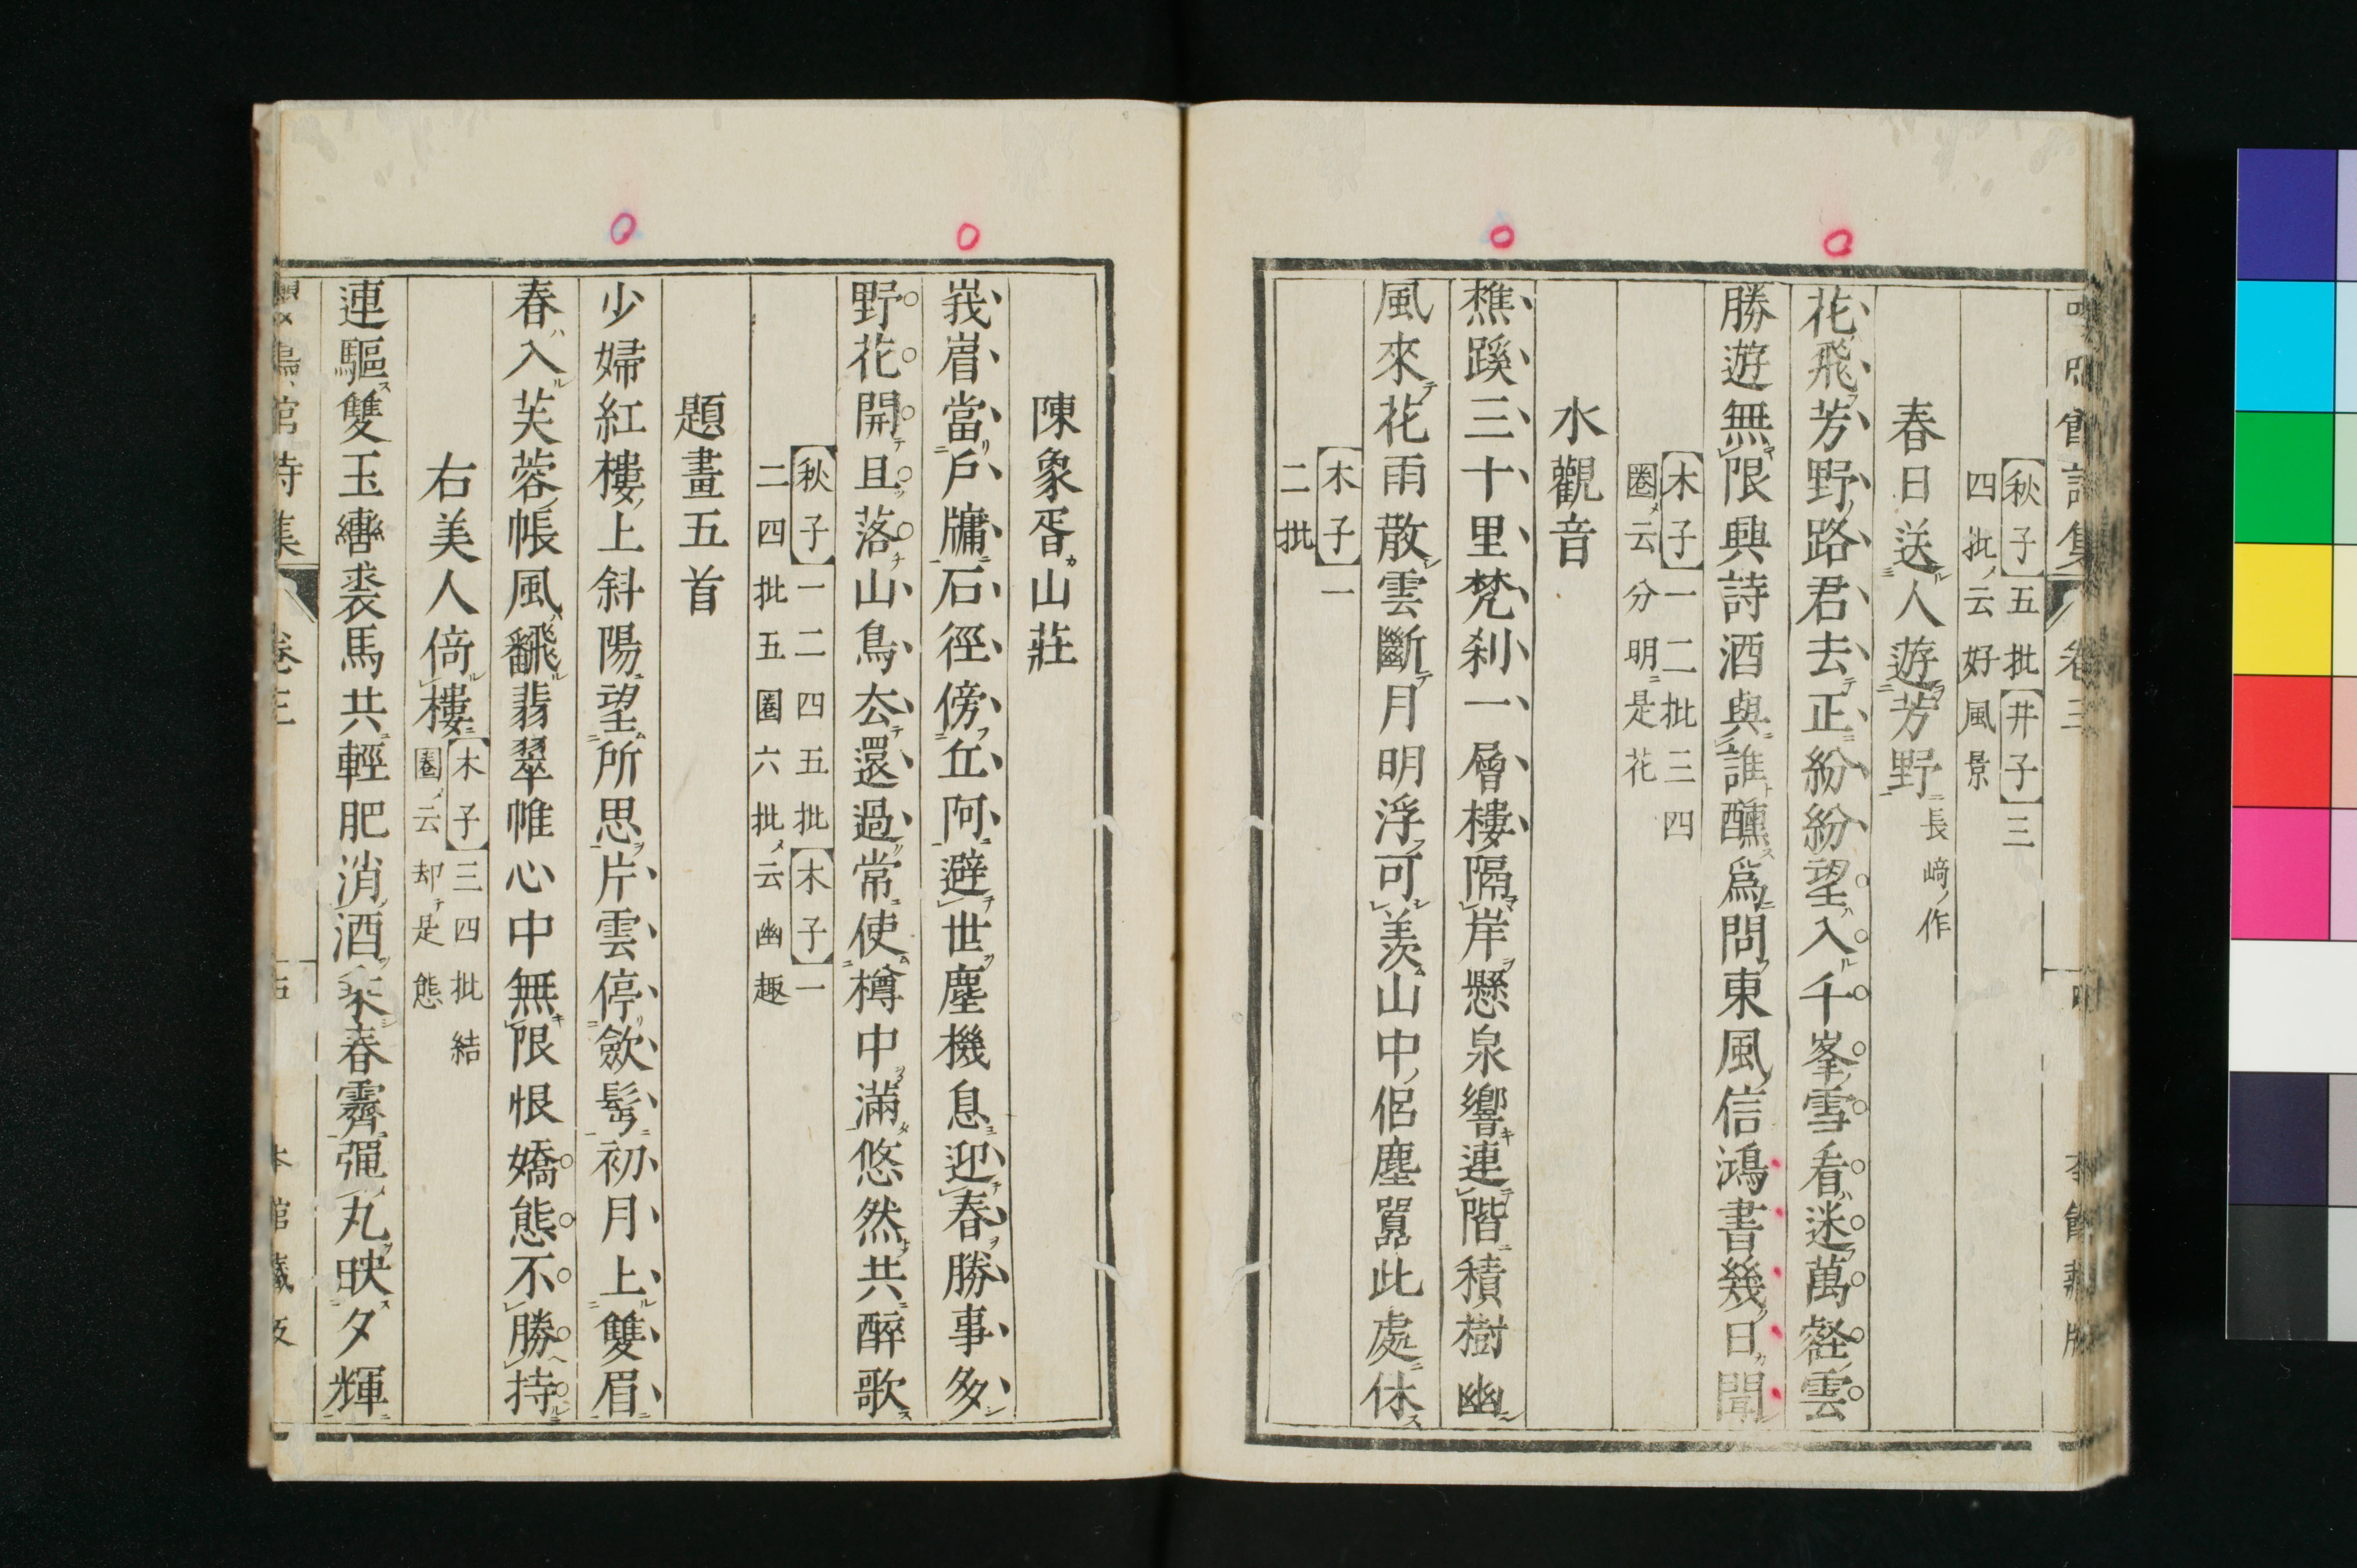 【秋子】五批【井子】三
四批云好風景
春日送人遊芳野 長﨑作
花飛芳野路君去正紛紛望入千峯雪看迷萬壑雲
勝遊無限興詩酒與誰醺爲問東風信鴻書幾日聞
【木子】一二批三四
圏云分明是花
水觀音
樵蹊三十里梵刹一層樓隔岸懸泉響連階積樹幽
風來花雨散雲斷月明浮可羨山中侶塵囂此處休
【木子】一
二批
陳象胥山莊
峩眉當戶牖石徑傍丘阿避世塵機息迎春勝事多
野花開且落山鳥去還過常使樽中滿悠然共醉歌
【秋子】一二四五批【木子】一
二四批五圈六批云幽趣
題畫五首
少婦紅樓上斜陽望所思片雲停歛髩初月上雙眉
春入芙蓉帳風飜翡翠帷心中無限恨嬌態不勝持
右美人倚樓【木子】三四批結
圈云却是態
連驅雙玉轡裘馬共輕肥消酒乘春霽彈丸映夕輝